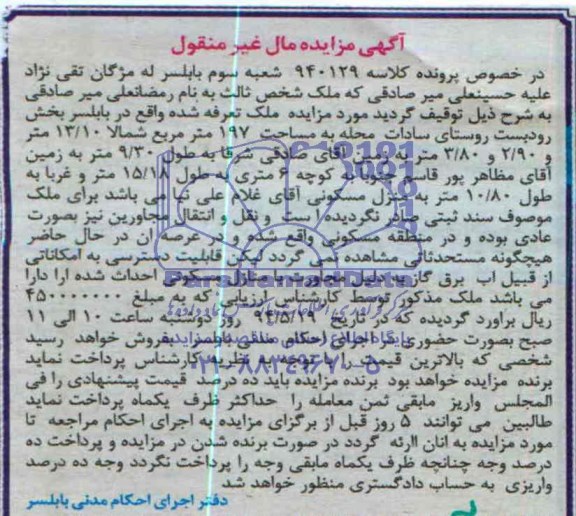 آگهی مزایده مال غیر منقول
در خصوص پرونده کلاسه ۹۴۰۱۲۹ شعبه سوم بابلسر له مژگان تقی نژاد
علیه حسینعلی میر صادقی که ملک شخص ثالث به نام رمضانعلی میر صادقی
به شرح ذیل توقیف گردید مورد مزایده ملک تعرفه شده واقع در بابلسر بخش
رودبست روستای سادات محله به مساحت ۱۹۷ متر مربع شمالا ۱۳/۱۰ متر
و ۲/۹۰ و ۳/۸۰ متر به زمین آقای صادقی شرقا به طول ۹/۳۰ متر به زمین
آقای مظاهر پور قاسم جنوبا به کوچه ۶ متری به طول ۱۵/۱۸ متر و غربا به
طول ۱۰/۸۰ متر به منزل مسکونی آقای غلام علی نیا می باشد برای ملک
موصوف سند ثبتی صادر نگردیده است و نقل و انتقال مجاورین نیز بصورت
عادی بوده و در منطقه مسکونی واقع شده و در عرصه ان در حال حاضر
هیچگونه مستحدثاتی مشاهده نمی گردد لیکن قابلیت دسترسی به امکاناتی
از قبیل اب برق گاز به دلیل مجاورت با منازل مسکونی احداث شده ارا دارا
می باشد ملک مذکور توسط کارشناس ارزیابی که به مبلغ ۴۵۰۰۰۰۰۰۰
ریال براورد گردیده که در تاریخ ۹۴/۵/۱۹ روز دوشنبه ساعت ۱۰ الی ۱۱
صبح بصورت حضوری در اجرای احکام مدنی بابلسر بفروش خواهد رسید
شخصی که بالاترین قیمت را با توجه به نظریه کارشناس پرداخت نماید
برنده مزایده خواهد بود برنده مزایده باید ده درصد قیمت پیشنهادی را فی
المجلس واریز مابقی ثمن معامله را حداکثر ظرف یکماه پرداخت نماید
طالبین می توانند ۵ روز قبل از برگزای مزایده به اجرای احکام مراجعه تا
مورد مزایده به انان اارئه گردد در صورت برنده شدن در مزایده و پرداخت ده
درصد وجه چنانچه ظرف یکماه مابقی وجه را پرداخت نگردد وجه ده درصد
واریزی به حساب دادگستری منظور خواهد شد
دفتر اجرای احکام مدنی بابلسر
ParsNamadData
۰۲۱-۸۸۳۴۹۶۷۰-۵